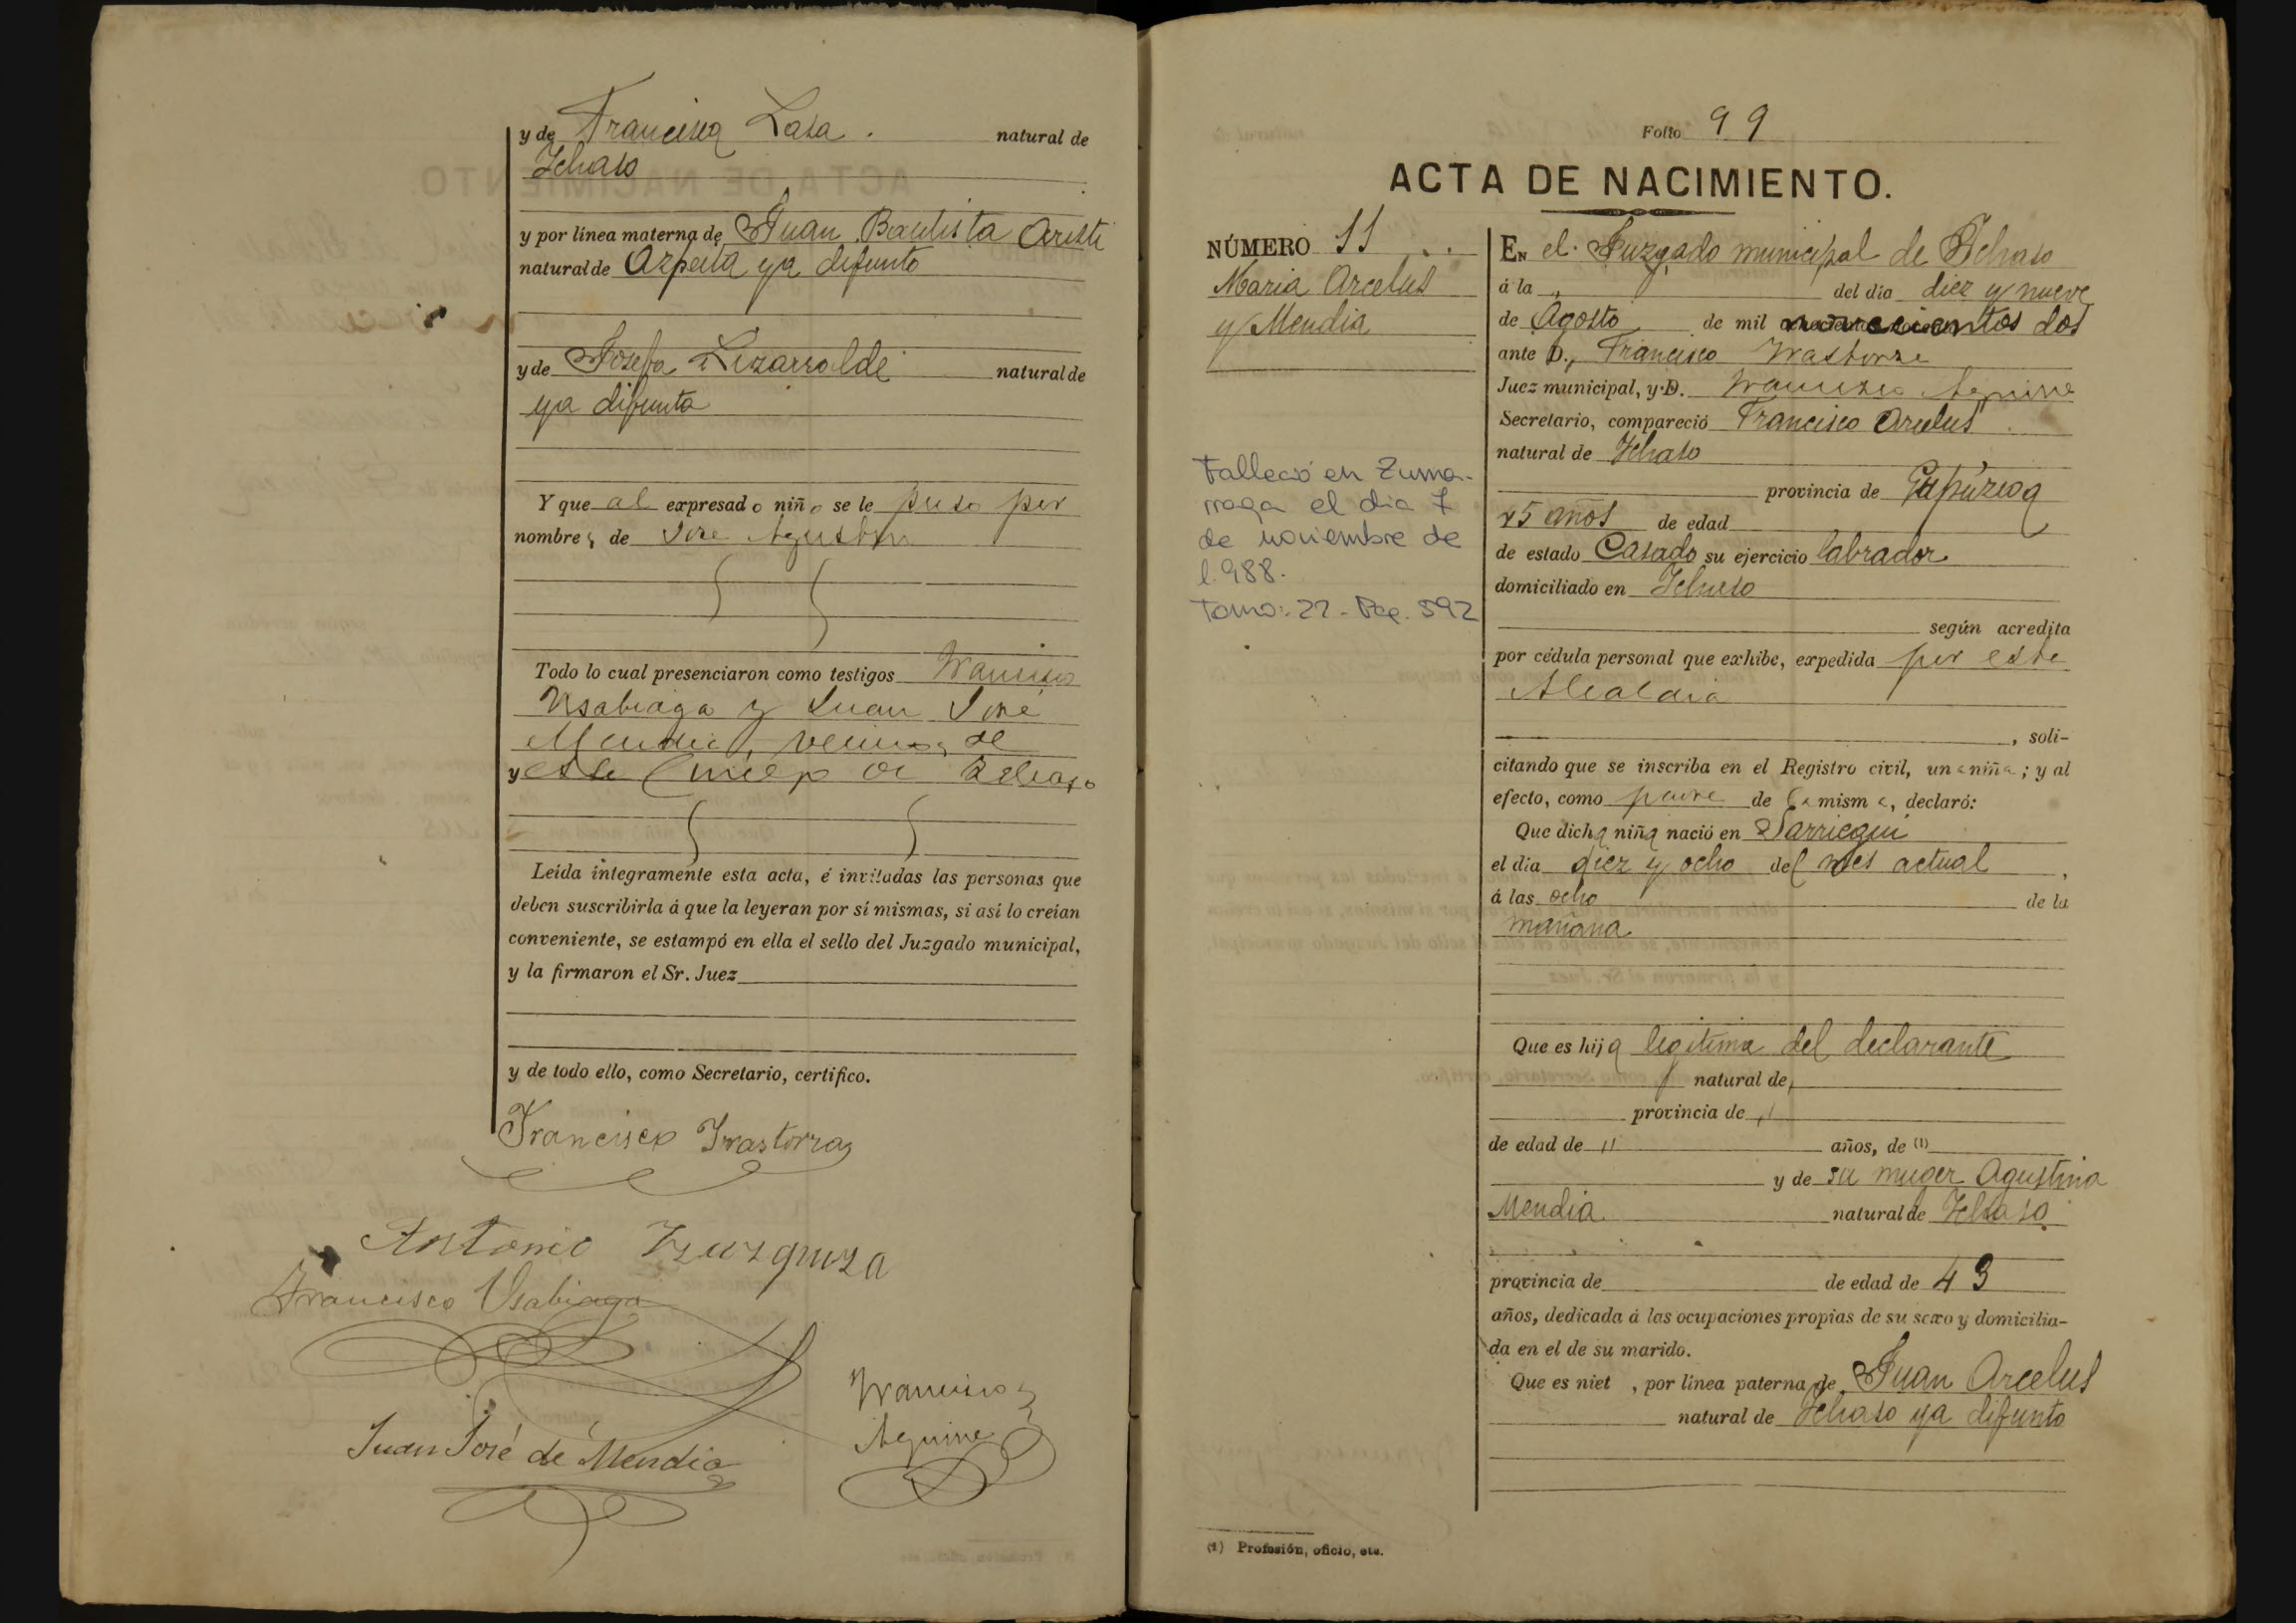 y de Francisca Lasa . natural de
Ichaso
y por línea materna de Juan Bautista Aristi
natural de Azpeitia ya difunto
y de Josefa Lizarralde natural de
ya difunta
Y que al expresado niño se le puso por
nombre, de José Agustin
Todo lo cual presenciaron como testigos Francisco
Usabiaga y Juan José
Mendia, vecinos de
y este Concejo de Ichaso
Leída íntegramente esta acta, é invitadas las personas que
deben suscribirla á que la leyeran por sí mismas, si así lo creían
conveniente, se estampó en ella el sello del Juzgado municipal,
y la firmaron el Sr. Juez
y de todo ello, como Secretario, certifico.
Francisco Irastorza
Antonio Izuzquiza
Francisco Usabiaga
Francisco
Aguirre
Juan José de Mendia
Folio 99
ACTA DE NACIMIENTO.
NÚMERO 11
Maria Arcelus
y Mendia
Falleció en Zuma-
rraga el dia 7
de noviembre de
1.988.
Tomo: 27 - Pag. 592
EN el Juzgado municipal de Ichaso
á la " del día diez y nueve
de Agosto de mil novecientos dos
ante D. Francisco Irastorza
Juez municipal, y D. Francisco Aguirre
Secretario, compareció Francisco Arcelus
natural de Ichaso
provincia de Guipúzcoa
45 años de edad
de estado Casado su ejercicio labrador
domiciliado en Ichaso
según acredita
por cédula personal que exhibe, expedida por esta
Alcaldia
, soli-
citando que se inscriba en el Registro civil, una niña; y al
efecto, como padre de la misma, declaró:
Que dicha niña nació en Sarriegui
el día diez y ocho del mes actual ,
á las ocho de la
mañana
Que es hija legitima del declarante
natural de
provincia de "
de edad de " años, de (1)
y de su muger Agustina
Mendia natural de Ichaso
provincia de de edad de 43
años, dedicada á las ocupaciones propias de su sexo y domicilia-
da en el de su marido.
Que es niet , por línea paterna de Juan Arcelus
natural de Ichaso ya difunto
(1) Profesión, oficio, etc.